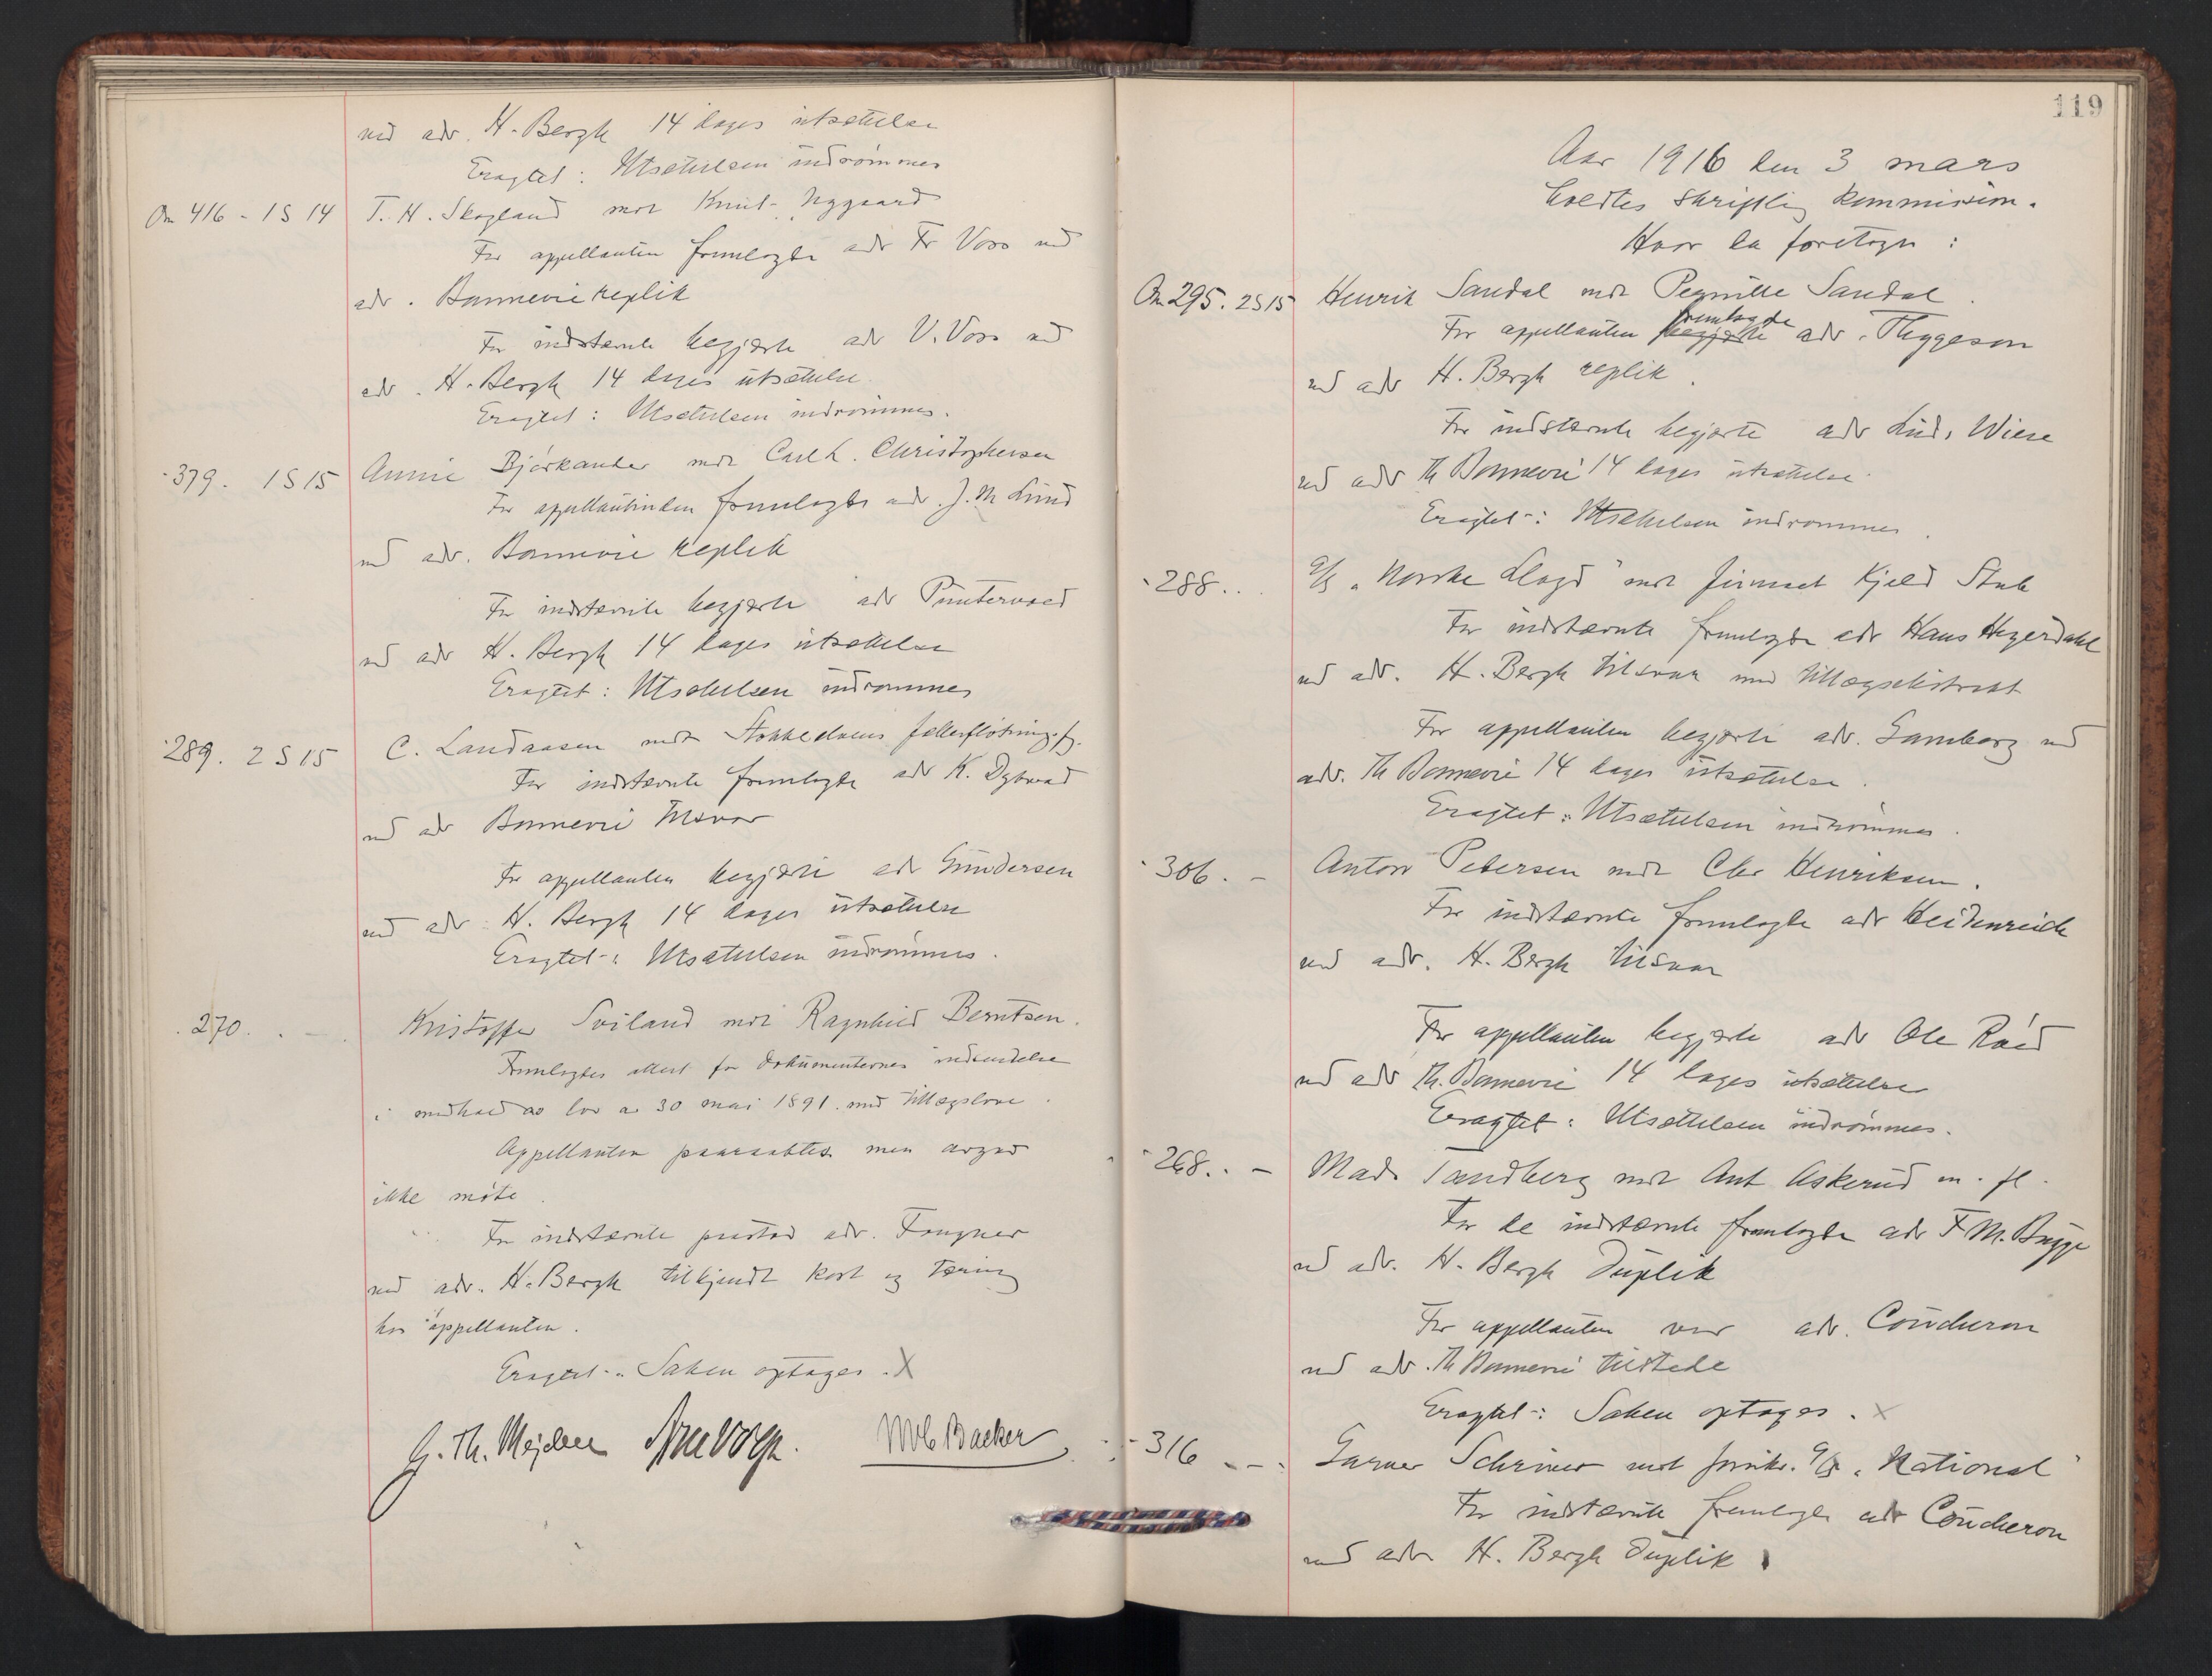 ved adv. H. Bergh 14 dages utsættelse
Eragtet: Utsættelsen indrømmes
On 416 - 1 S 14 T. H. Skogland mot Knut Nygaard
For appellanten fremlagde adv Fr Voss ved
adv. Bonnevie replik
For indstevnte begjærte adv V. Voss ved
adv. H. Bergh 14 dages utsættelse.
Eragtet: Utsættelsen indrømmes.
- 379. 1 S 15 Annie Bjørkander mot Carl L. Christophersen
For appellantinden fremlagde adv. J. M Lund
ved adv. Bonnevie replik
For indstevnte begjærte adv Puntervold
ved adv H. Bergh 14 dages utsættelse
Eragtet: Utsættelsen indrømmes
- 289. 2 S 15 C. Landaasen mot Stokkeelvens fællesfløtningsf.
For indstevnte fremlagde adv K. Dybwad
ved adv Bonnevie tilsvar
For appellanten begjærte adv Gundersen
ved adv. H. Bergh 14 dages utsættelse
Eragtet: Utsættelsen indrømmes.
- 270. . - Kristoffer Soiland mot Ragnhild Berntsen.
Fremlagdes attest for dokumenternes indsendelse
i medhold av lov av 30 mai 1891 med tillægslove.
Appellanten paaraabtes men avgav
ikke møte.
For indstevnte paastod adv. Fougner
ved adv. H. Bergh tilkjendt kost og tæring
hos appellanten.
Eragtet: Saken optages. X
G. Th. Mejdell Backer
119
Aar 1916 den 3 mars
holdtes skriftlig kommission.
Hvor da foretoges:
On 295. 2 S 15 Henrik Sandal mot Pernille Sandal.
fremlagde
For appellanten begjærte adv. Thygeson
ved adv H. Bergh replik.
For indstevnte begjærte adv Lud. Wiese
ved adv Th Bonnevie 14 dages utsættelse.
Eragtet: Utsættelsen indrømmes.
- 288. . A/S "Norske Lloyd" mot firmaet Kjeld Stub
For indstævnte fremlagde adv Hans Heyerdahl
ved adv. H. Bergh tilsvar med tillægsekstrakt
For appellanten begjærte adv. Hamberg ved
adv. Th Bonnevie 14 dages utsættelse.
Eragtet: Utsættelsen indrømmes.
- 306. - Anton Petersen mot Chr Henriksen.
For indstævnte fremlagde adv Heidenreich
ved adv. H. Bergh tilsvar
For appellanten begjærte adv Ole Røed
ved adv Th. Bonnevie 14 dages utsættelse
Eragtet: Utsættelsen indrømmes.
- 268. . - Mads Sandberg mot Ant Askerud m. fl.
For de indstævnte fremlagde adv F. M. Bugge
ved adv. H. Bergh duplik
For appellanten var adv. Coucheron
ved adv. Th Bonnevie tilstede
Eragtet: Saken optages. X
- 316 - - Schriver mot A/S "National"
For indstævnte fremlagde adv Coucheron
ved adv H. Bergh duplik